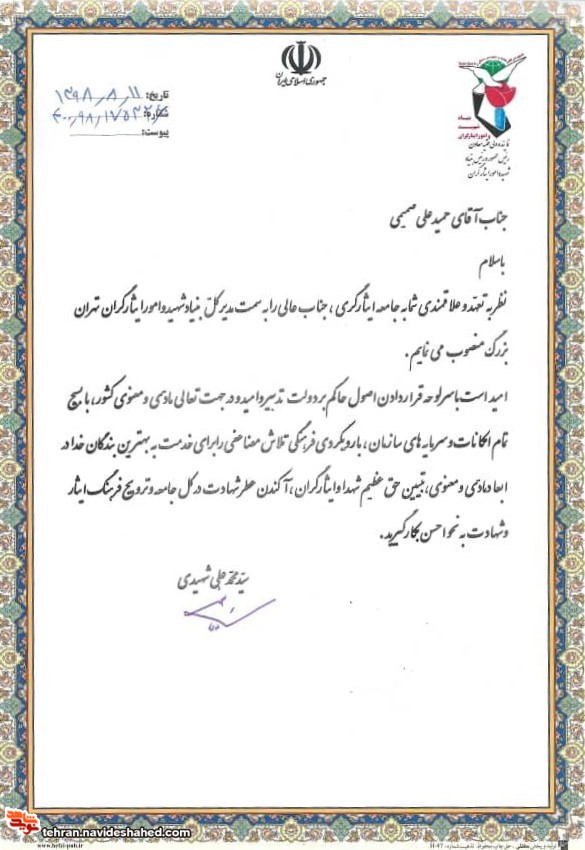 جمهوری اسلامی ایران
تاریخ: ۱۳۹۸,۸,۱۱
شماره:
پیوست:
بنیاد
شهید
و امور ایثارگران
نماینده ولی فقیه، معاون
رئیس جمهور و رئیس بنیاد
شهید و امور ایثارگران
جناب آقای حمید علی صمیمی
باسلام
نظر به تعهد و علاقمندی شما به جامعه ایثارگری، جناب عالی را به سمت مدیر کلّ بنیاد شهید و امور ایثارگران تهران
بزرگ منصوب می نمایم.
امید است با سرلوحه قراردادن اصول حاکم بر دولت تدبیر و امید و در جهت تعالی مادی و معنوی کشور، با بسیج
تمام امکانات و سرمایه های سازمان، با رویکردی فرهنگی تلاش مضاعفی را برای خدمت به بهترین بندگان خدا در
ابعاد مادی و معنوی، تبیین حق عظیم شهدا و ایثارگران، آکندن عطر شهادت در کل جامعه و ترویج فرهنگ ایثار
و شهادت به نحو احسن بکار گیرید.
سیّد محمّد علی شهیدی
tehran.navideshahed.com
www.hefzi-pub.ir